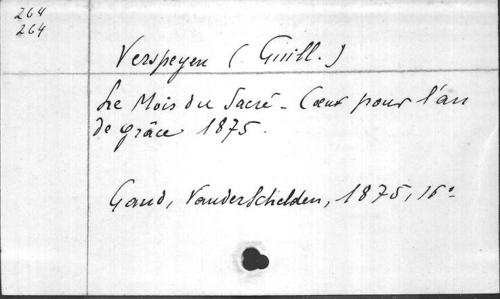 264
264
Verspeyen (Guill.)
Le Mois du Sacré-Cœur pour l'an
de grâce 1875.
Gand, Vanderschelden, 1875, 16°